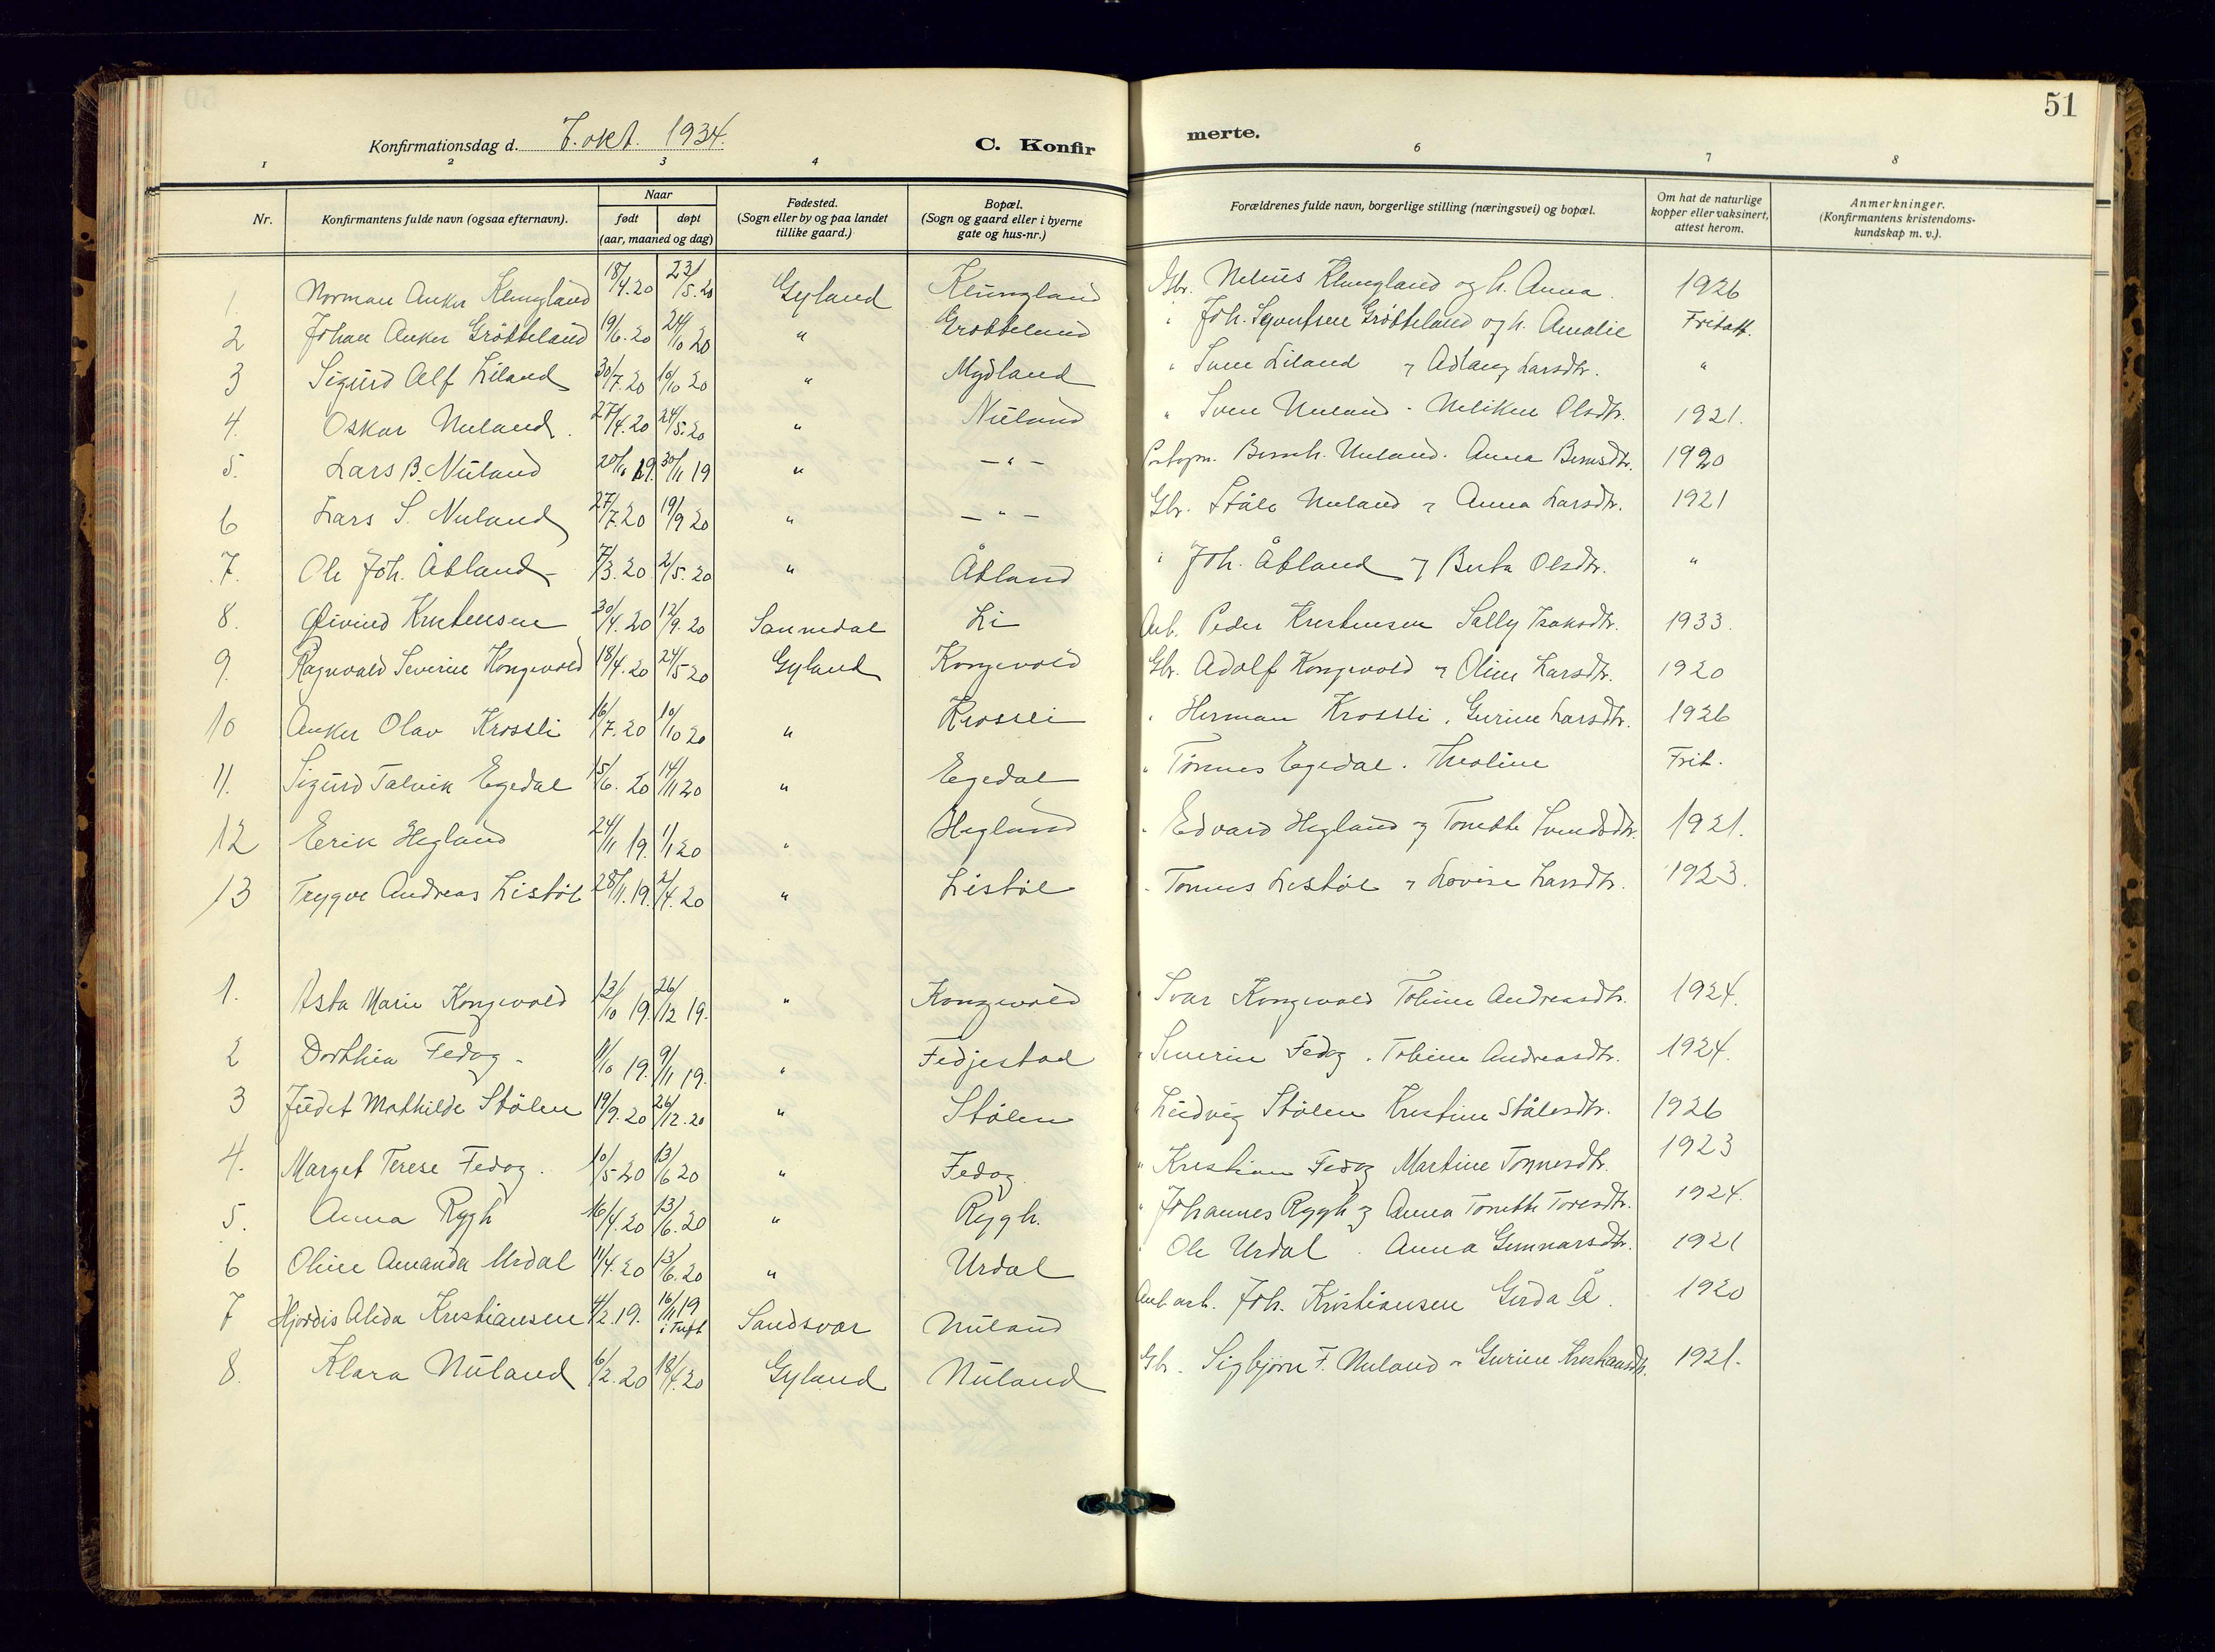 51
Konfirmationsdag d. 7. okt. 1934. C. Konfirmerte.
1 2 3 4 6 7 8
Nr. Konfirmantens fulde navn (ogsaa efternavn). Naar født døpt (aar, maaned og dag) Fødested. (Sogn eller by og paa landet tillike gaard.) Bopæl. (Sogn og gaard eller i byerne gate og hus-nr.) Forældrenes fulde navn, borgerlige stilling (næringsvei) og bopæl. Om hat de naturlige kopper eller vaksinert, attest herom. Anmerkninger. (Konfirmantens kristendomskundskap m. v.).
1. Norman Anker Klungland 18/4.20 23/5.20 Gyland Klungland Gbr. Nelius Klungland og h. Anna. 1926
2 Johan Anker Grøtteland 19/6.20 24/10 20 " Grøtteland " Joh. Grøtteland og h. Amalie Fritatt.
3 Sigurd Alf Liland 30/7.20 10/10 20 " Mydland " Sven Liland " Aslaug Larsdtr. "
4. Oskar Nuland. 27/4.20 24/5.20 " Nuland " Sven Nuland - Olsdtr. 1921.
5. Lars B. Nuland 20/11 19. 30/11 19 " — " — Bernh. Nuland. Anna 1920
6 Lars S. Nuland 27/7.20 19/9 20 " — " — Gbr. Ståle Nuland " Anna Larsdtr. 1921
7. Ole Joh. Åtland 7/3.20 2/5.20 " Åtland " Joh. Åtland " Berta Olsdtr. "
8. Øivind Kristensen 30/4.20 12/9.20 Sannidal Li Arb. Peder Kristensen Sally Isaksdtr. 1933.
9. Ragnvald Severin Kongevold 18/4.20 24/5 20 Gyland Kongevold Gbr. Adolf Kongevold " Oline Larsdtr. 1920
10 Anker Olav Krossli 16/7.20 10/10 20 " Krossli " Herman Krossli. Gurine Larsdtr. 1926
11. Sigurd Talvik Egedal 15/6.20 14/11 20 " Egedal " Tønnes Egedal. Theoline Frit.
12 Eerik Hegland 24/11 19. 1/1 20 " Hegland " Edvard Hegland og Tonette Svendsdtr. 1921.
13 Trygve Andreas Listøl 28/11.19. 2/4.20 " Listøl " Tønnes Listøl " Lovise Larsdtr. 1923.
1. Asta Marie Kongevold 13/10 19. 26/12 19. " Kongevold " Ivar Kongevold Tobine Andreasdtr. 1924.
2 Dorthea Fedog. 11/10 19. 9/11 19. " Fedjestad " Severin Fedog. Tobine Andreasdtr. 1924.
3 Judet Mathilde Stølen 19/9.20 26/12.20 " Stølen " Ludvig Stølen Kristine Stålesdtr. 1926
4. Marget Terese Fedog. 10/5 20 13/6 20 " Fedog. " Kristian Fedog Martine Tønnesdtr. 1923
5. Anna Rygh 16/4.20 13/6.20 " Rygh. " Johannes Rygh og Anna Tonette Toresdtr. 1924.
6 Oline Amanda Urdal 11/4.20 13/6.20 " Urdal " Ole Urdal. Anna Gunnarsdtr. 1921
7 Hjørdis Alida Kristiansen 4/2.19. 16/11 19 i Tuft Sandsvær Nuland Joh. Kristiansen Gerda Å. 1920
8. Klara Nuland 6/2.20 18/4.20 Gyland Nuland Gbr. Sigbjørn F. Nuland " Gurine Kristiansdtr. 1921.